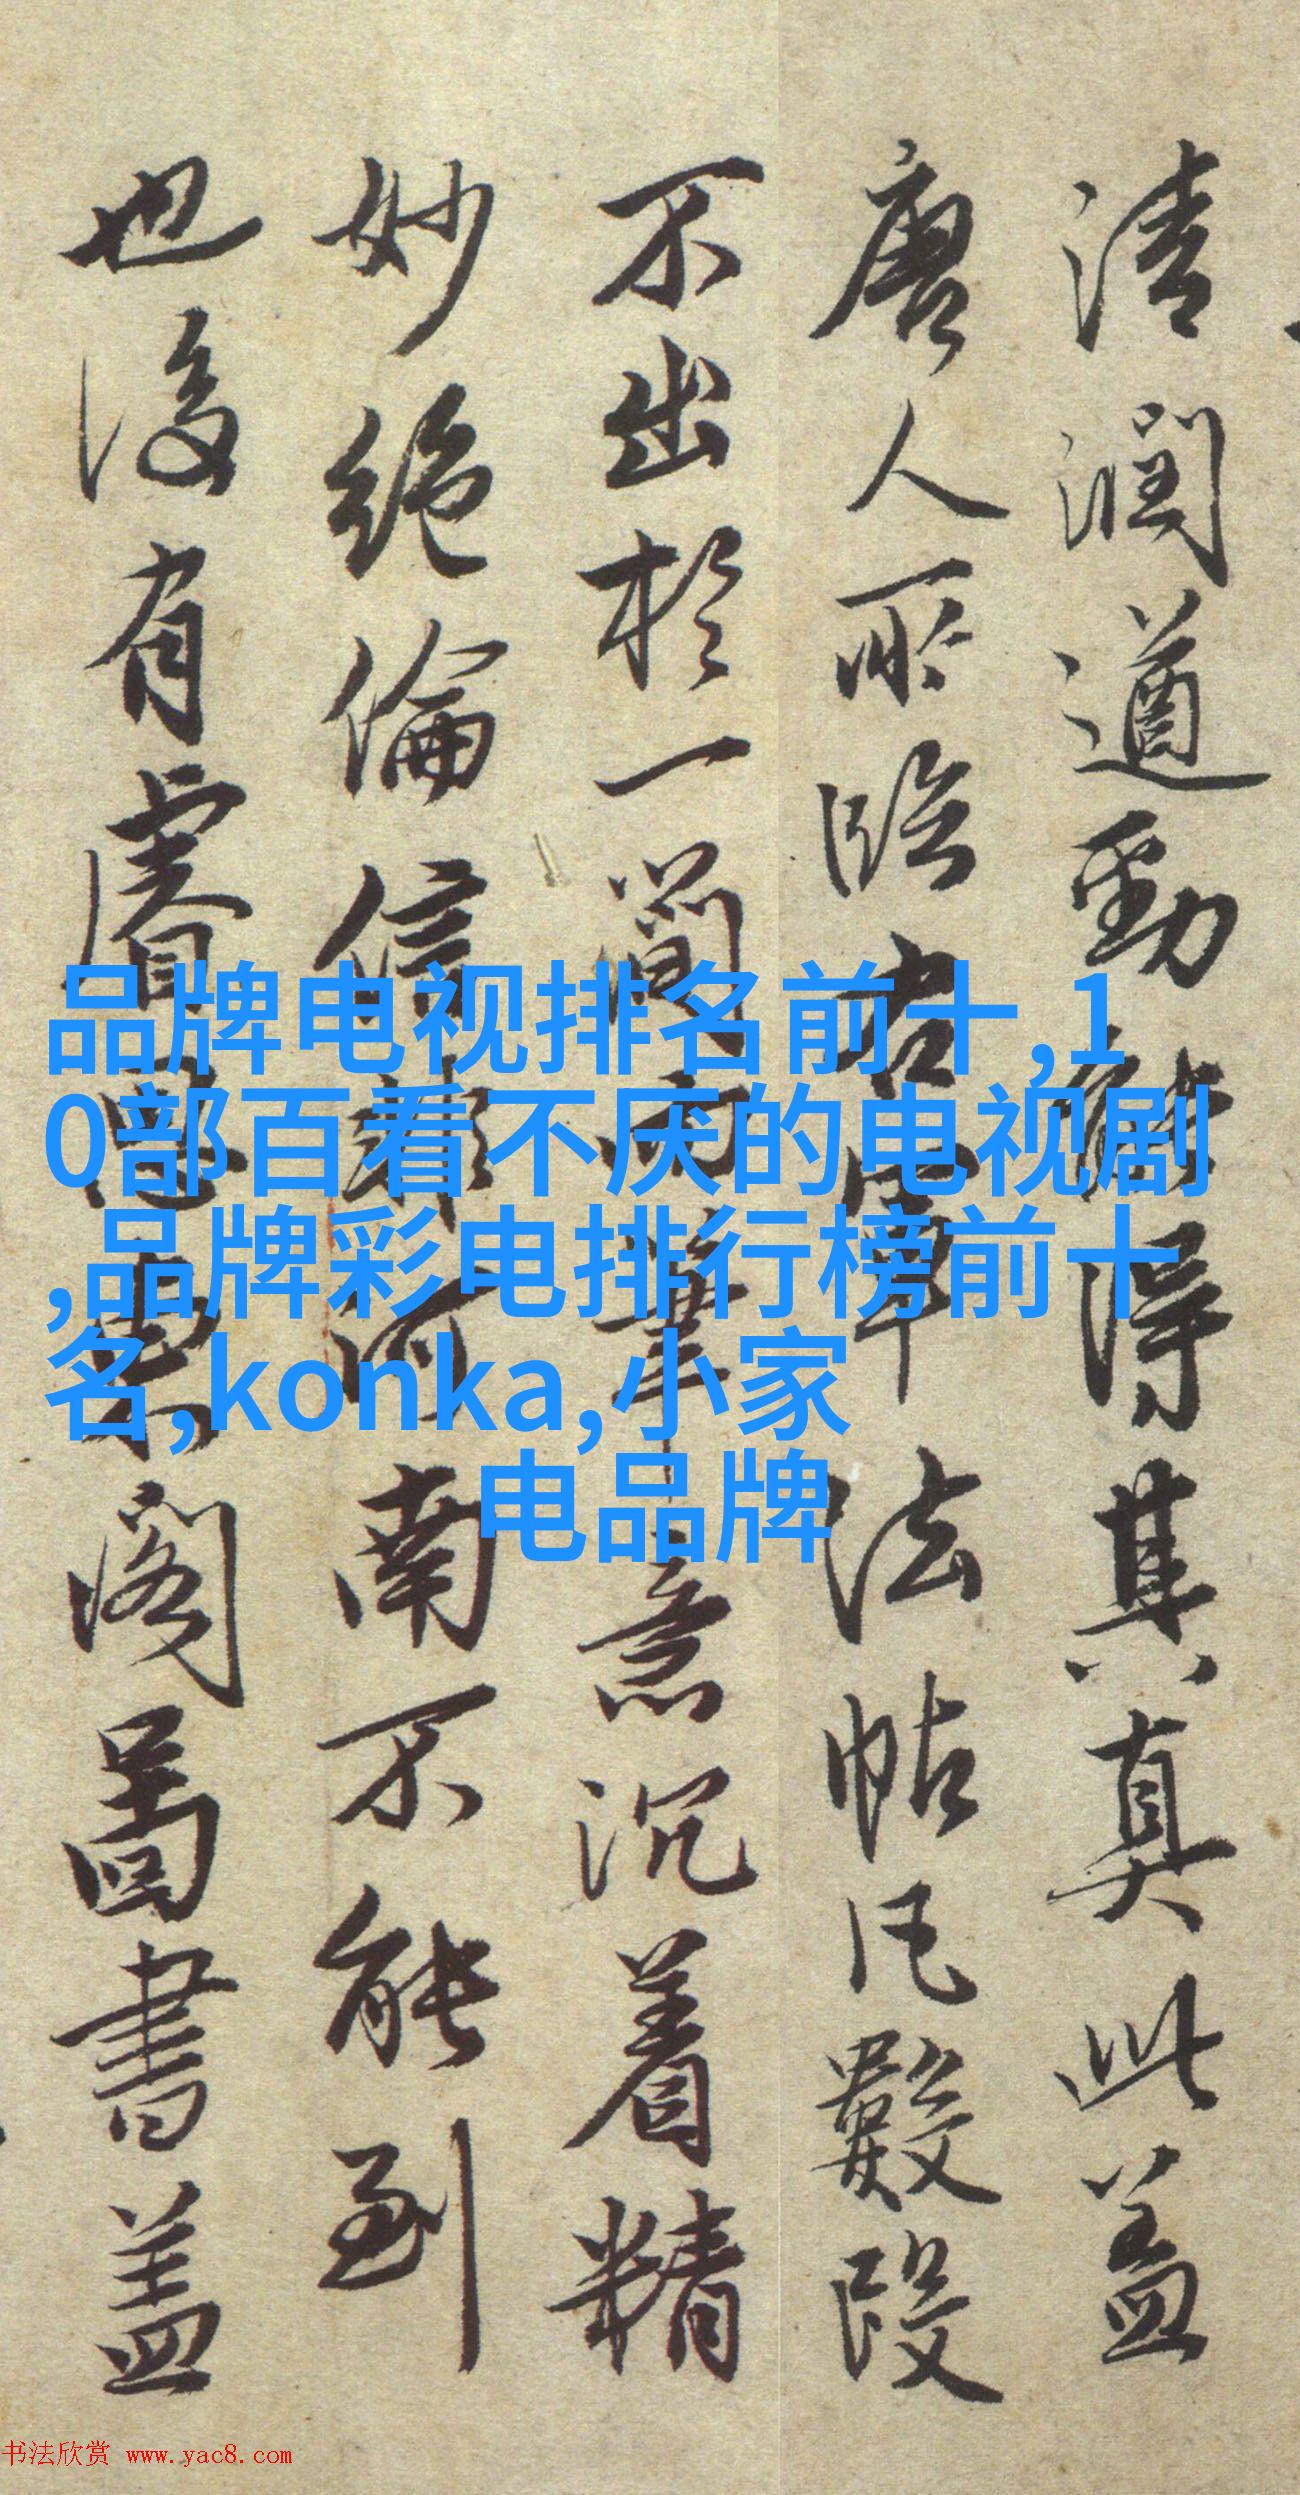 清潤遒勁能得其真此蓋
唐人所臨右軍法帖凡數段
不出於一簡而筆意沉着精
妙絕倫信非河南不能到
也後有睿思東閣圖書蓋
品牌电视排名前十,1
0部百看不厌的电视剧
,品牌彩电排行榜前十
名,konka,小家
电品牌
书法欣赏 www.yac8.com